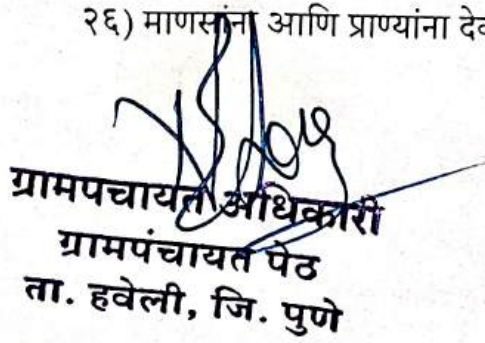 २६) माणसांना आणि प्राण्यांना देव
ग्रामपचायत अधिकारी
ग्रामपंचायत पेठ
ता. हवेली, जि. पुणे